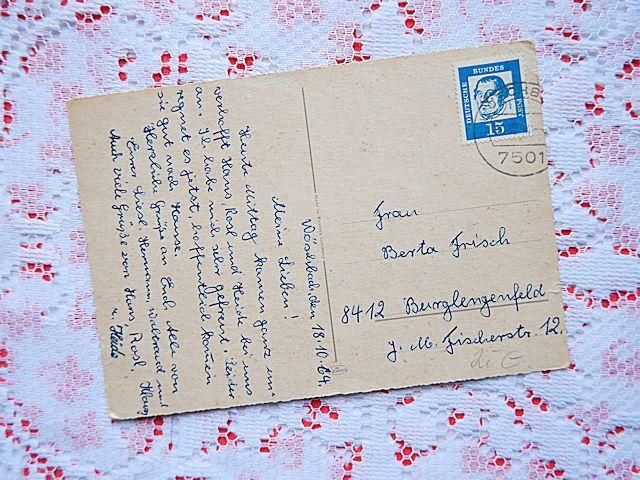 Wöschbach, den 18.10.64.
Meine Lieben!
Heute Mittag kamen ganz un
verhofft Hans Rosl und Heide bei uns
an. Ich habe mich sehr gefreut. Leider
regnet es jetzt, hoffentlich kommen
sie gut nach Hause.
Herzliche Grüße an Euch alle von
Eurer Liesl, Hermann, Waltraud und
Auch viele Grüße von Hans, Rosl, Klaus
u. Heide
DEUTSCHE BUNDESPOST
15
7501
Frau
Berta Frisch
8412 Burglengenfeld
J. M. Fischerstr. 12.